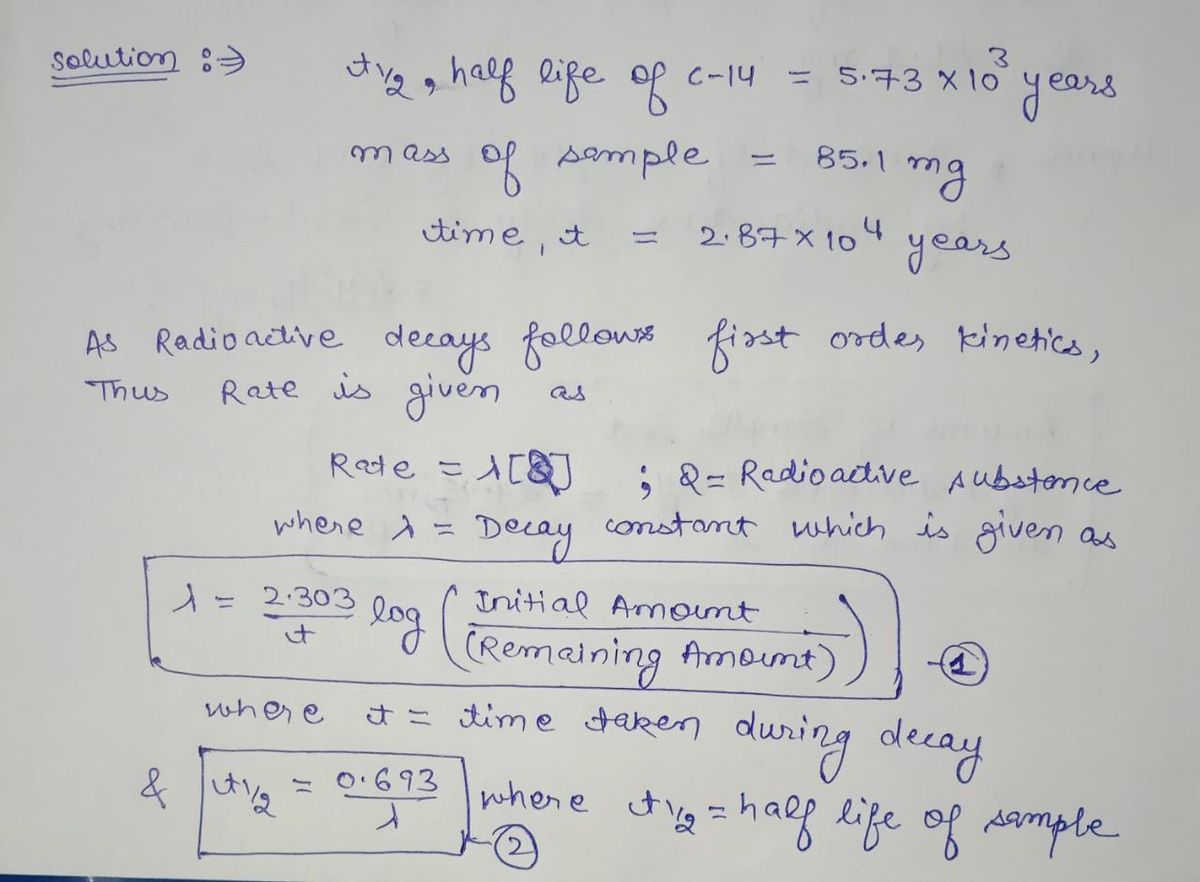 solution :⇒
t1/2, half life of C-14 = 5.73 × 10³ years
mass of sample = 85.1 mg
time, t = 2.87 × 10⁴ years
As Radioactive decays follows first order kinetics,
Thus Rate is given as
Rate = λ[Q] ; Q = Radioactive substance
where λ = Decay constant which is given as
λ = 2.303/t log (Initial Amount/(Remaining Amount)) -①
where t = time taken during decay
& t1/2 = 0.693/λ -② where t1/2 = half life of sample